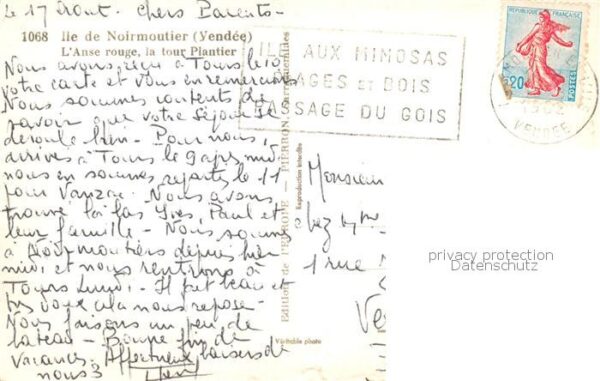 Le 17 Août. Chers Parents -
1068 Ile de Noirmoutier (Vendée)
L'Anse rouge, la tour Plantier
Nous avons reçu à Tours le 10
votre carte et vous en remercions
Nous sommes contents de
savoir que votre séjour se
déroule bien - Pour nous,
arrivés à Tours le 9 après midi
nous en sommes repartis le 11
pour Vanzac. Nous avons
trouvé là bas Yves, Paul et
leur famille - Nous sommes
à Noirmoutiers depuis hier
midi et nous rentrons à
Tours Lundi - Il fait beau et
doux cela nous repose -
Nous faisons un peu de
bateau - Bonne fin de
vacances. Affectueux baisers de
nous 3
Edition de l'EUROPE — PIERRON, Sarreguemines
Reproduction interdite
Véritable photo
ILE AUX MIMOSAS
PLAGES ET BOIS
PASSAGE DU GOIS
REPUBLIQUE FRANÇAISE
0,20
POSTES
1962
VENDEE
Monsieur
chez
1 rue
privacy protection
Datenschutz